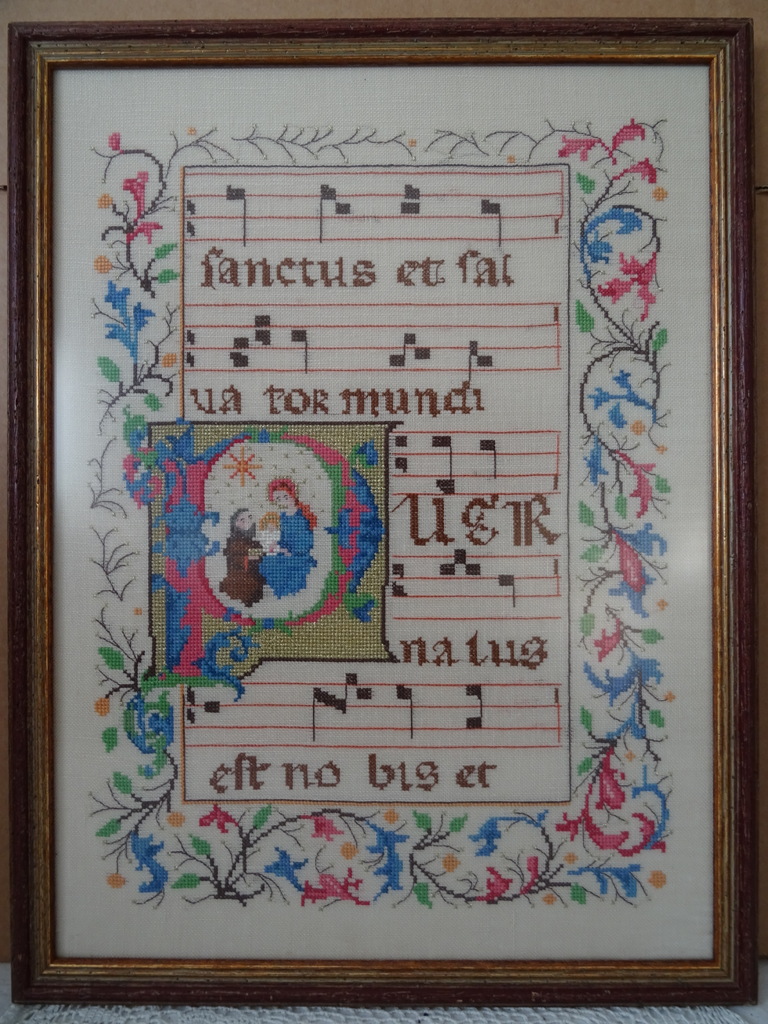 sanctus et sal
va tor mundi
PUER
natus
est no bis et